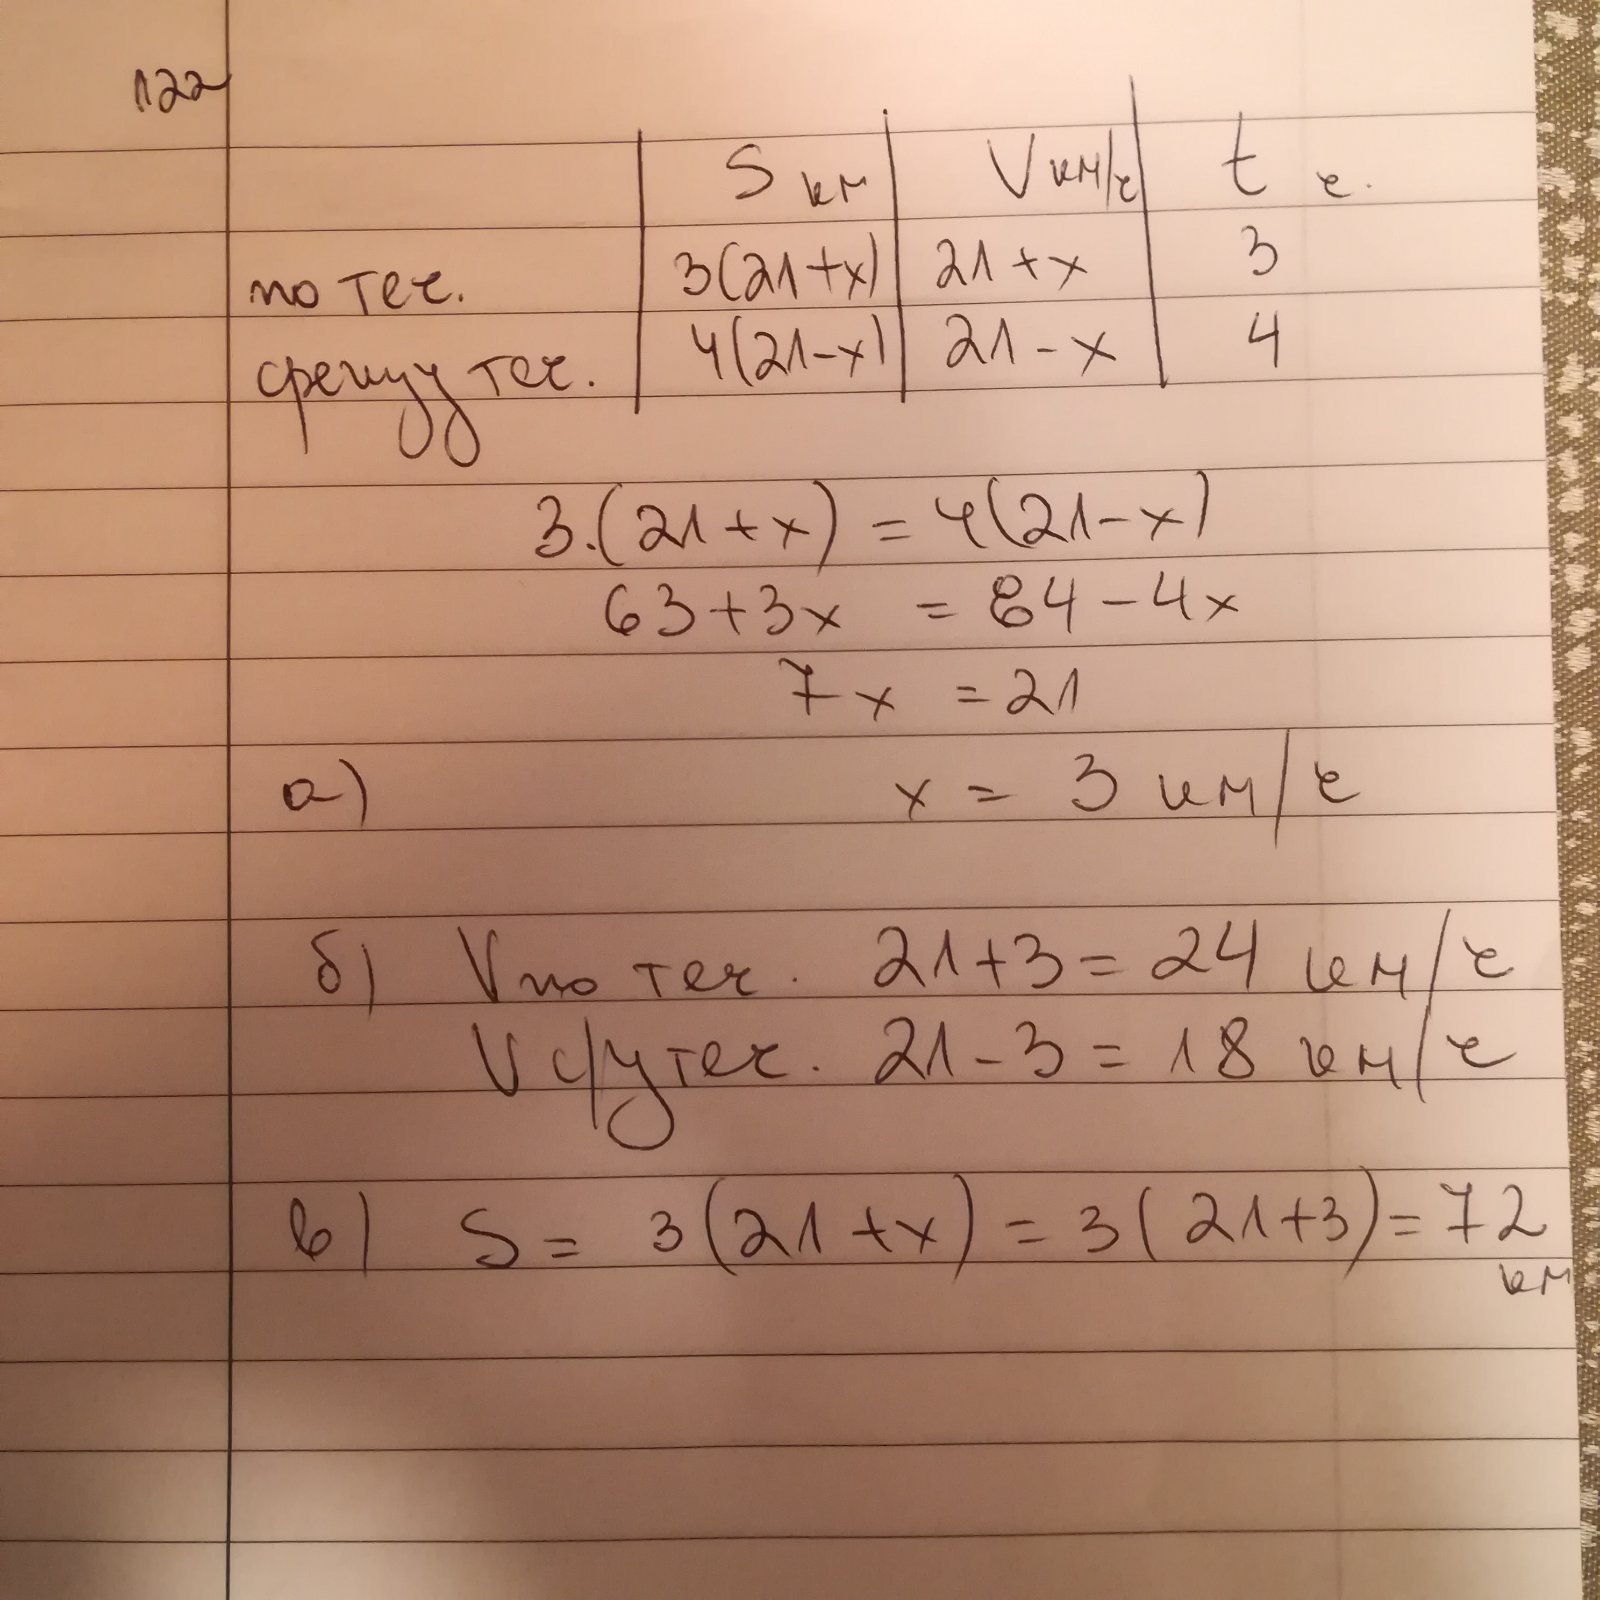 122
S км | V км/ч | t ч.
по теч. | 3(21+x) | 21+x | 3
срещу теч. | 4(21-x) | 21-x | 4
3.(21+x) = 4(21-x)
63+3x = 84-4x
7x = 21
а) x = 3 км/ч
б) V по теч. 21+3=24 км/ч
V с/у теч. 21-3=18 км/ч
в) S = 3(21+x) = 3(21+3)=72
км